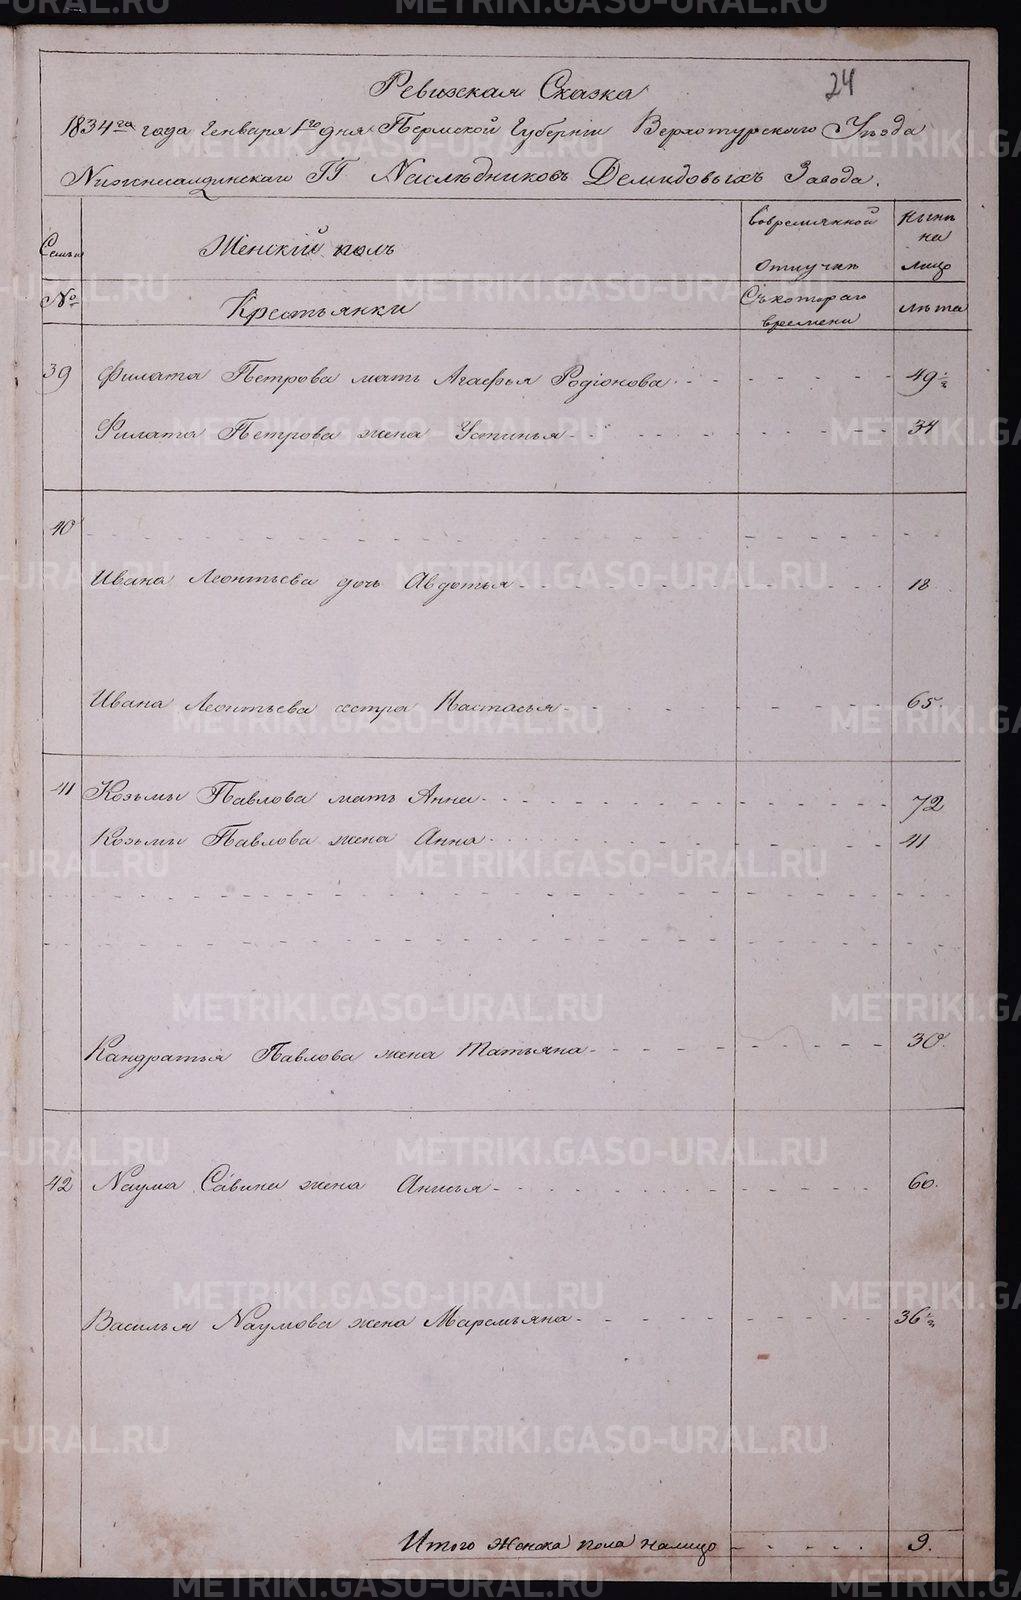 24
Ревизская Сказка
1834го года Генваря 1го дня Пермской Губерніи Верхотурскаго Уѣзда
Нижнесалдинскаго ГГ Наслѣдниковъ Демидовыхъ Завода.
Семьи
Женскій полъ
вовременной отлучкѣ
нынѣ на лицо
№
Крестьянки
Съкотораго времени
лѣта
39 Филата Петрова мать Агафья Родіонова 49 ½
Филата Петрова жена Устинья 34
40
Ивана Леонтьева дочь Авдотья 18
Ивана Леонтьева сестра Настасья 65.
41 Козьмы Павлова мать Анна 72
Козьмы Павлова жена Анна 41
Кандратья Павлова жена Татьяна 30.
42 Наума Савина жена Анисья 60.
Василья Наумова жена Маремьяна 36 ½
Итого женска пола налицо 9.
METRIKI.GASO-URAL.RU